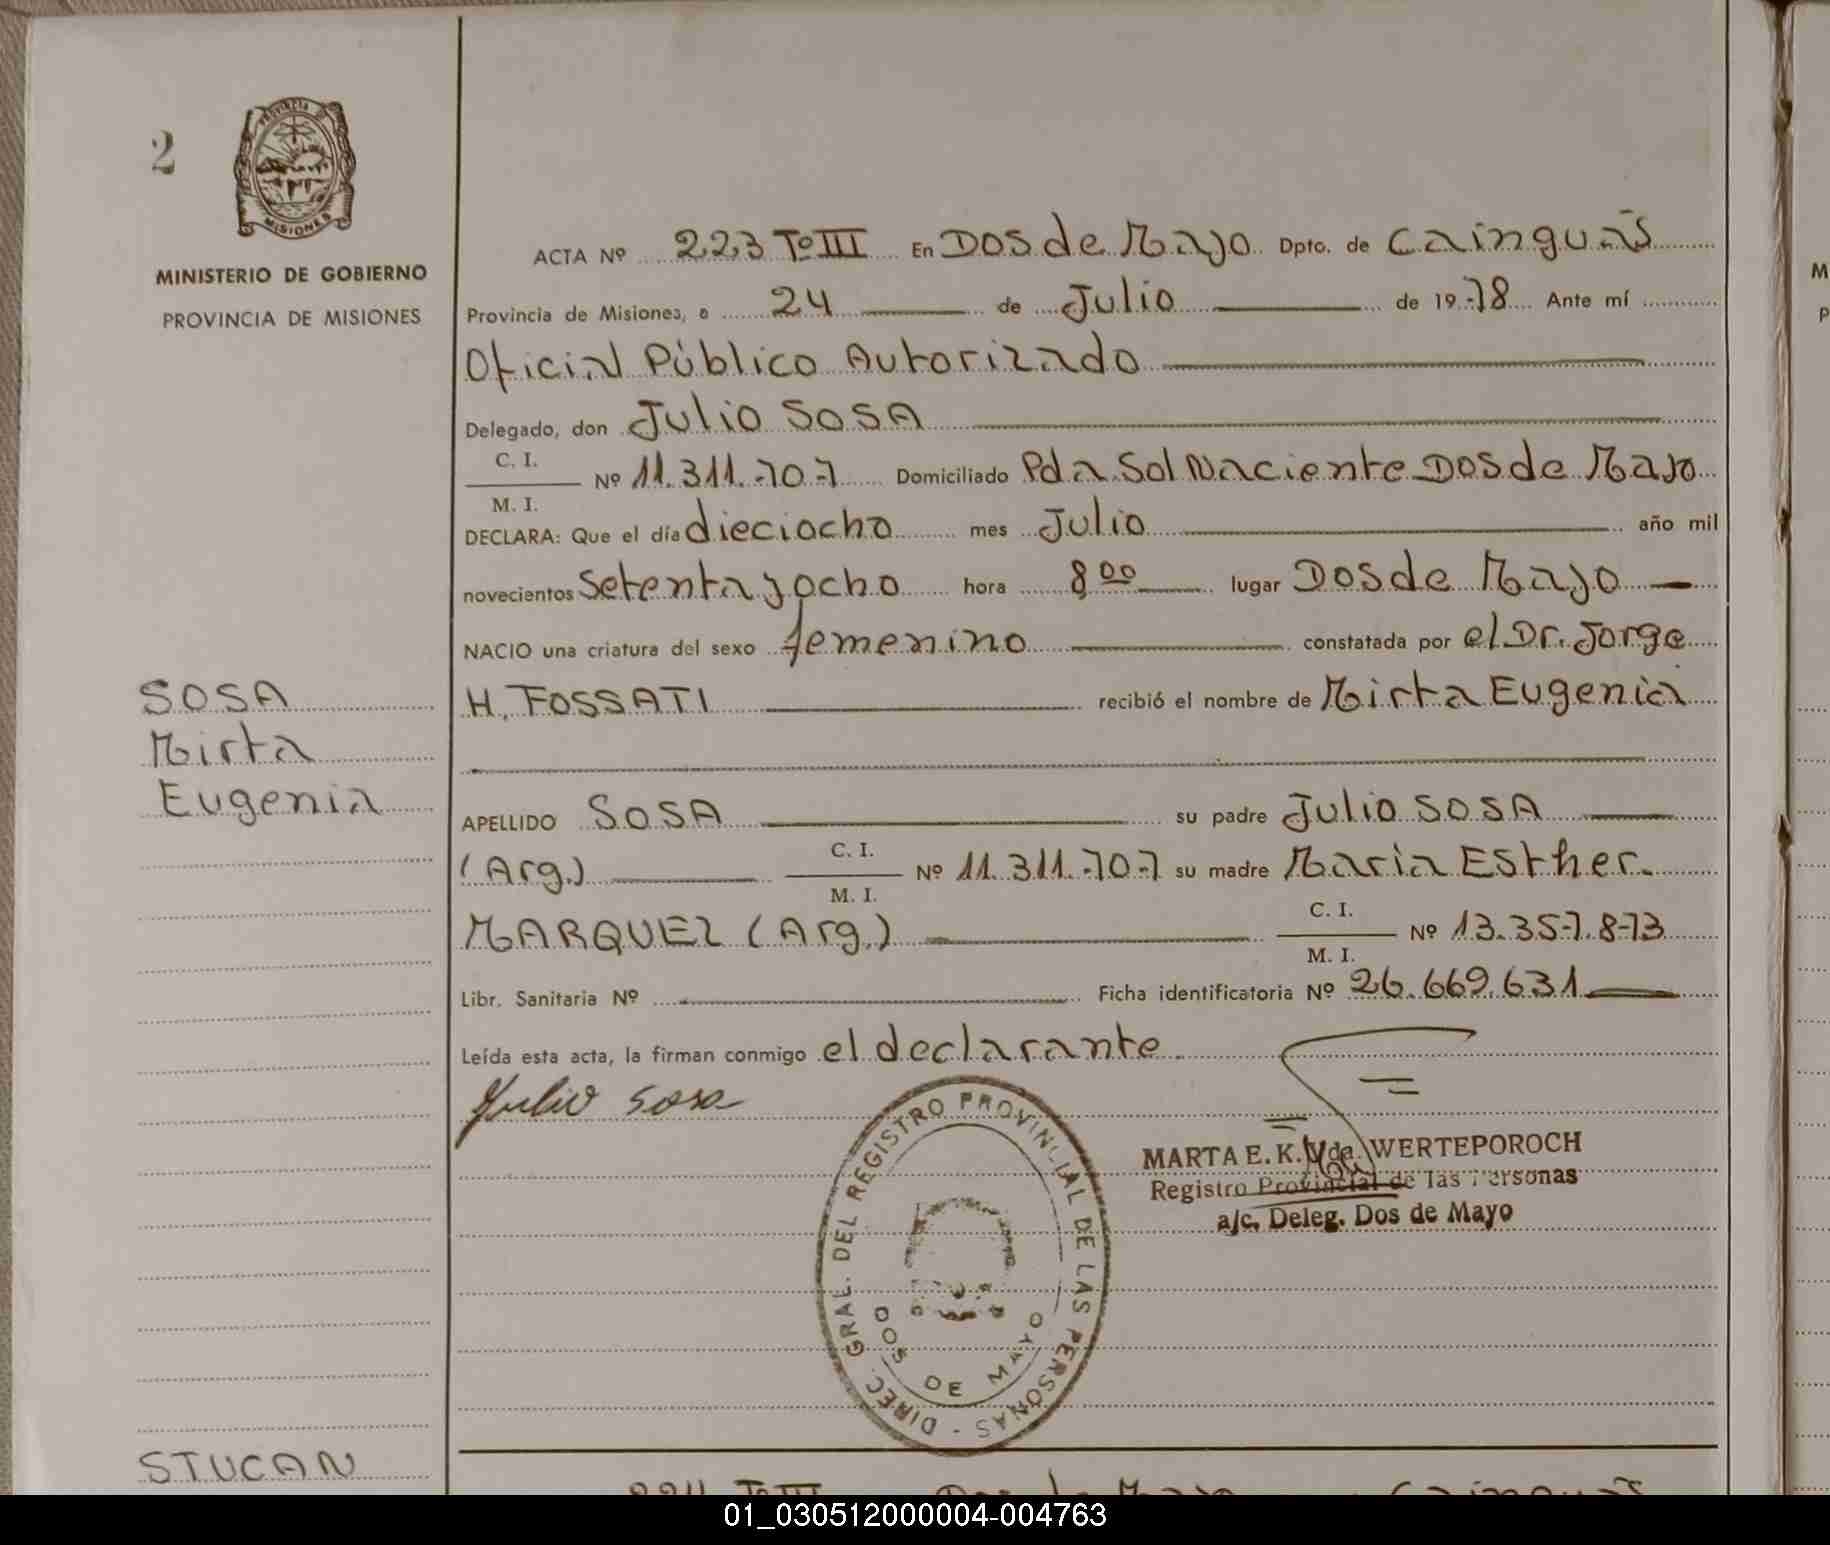 2
PROVINCIA DE
MISIONES
MINISTERIO DE GOBIERNO
PROVINCIA DE MISIONES
SOSA
Mirta
Eugenia
STUCAN
ACTA Nº 223 Tº III En Dos de Mayo Dpto. de Cainguás
Provincia de Misiones, a 24 de Julio de 1978 Ante mí
Oficial Público Autorizado
Delegado, don Julio SOSA
C. I.
M. I. Nº 11.311.707 Domiciliado Pda Sol Naciente Dos de Mayo
DECLARA: Que el día dieciocho mes Julio año mil
novecientos Setenta y ocho hora 8 00 lugar Dos de Mayo
NACIO una criatura del sexo femenino constatada por el Dr. Jorge
H. FOSSATI recibió el nombre de Mirta Eugenia
APELLIDO SOSA su padre Julio SOSA
(Arg.) C. I. M. I. Nº 11.311.707 su madre Maria Esther
MARQUEZ (Arg.) C. I. M. I. Nº 13.357.873
Libr. Sanitaria Nº Ficha identificatoria Nº 26.669.631
Leída esta acta, la firman conmigo el declarante
Julio Sosa
DIREC. GRAL. DEL REGISTRO PROVINCIAL DE LAS PERSONAS -
DOS DE MAYO
MARTA E. K. Vda. WERTEPOROCH
Registro Provincial de las Personas
a/c. Deleg. Dos de Mayo
224 Tº III Dos de Mayo Cainguás
M
P
01_030512000004-004763